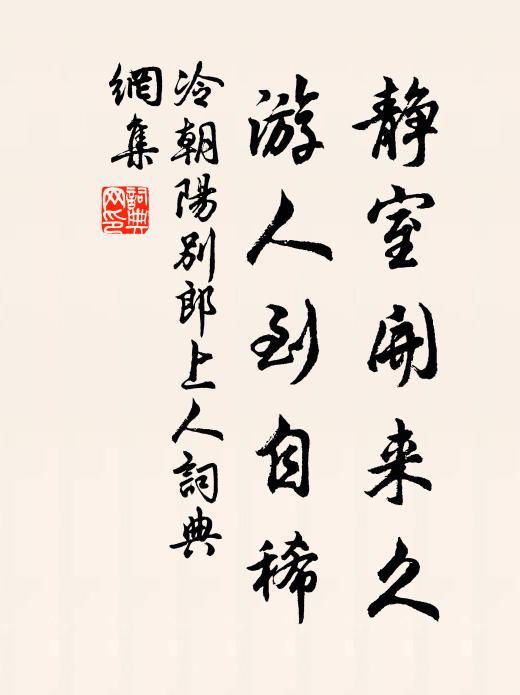 静室開来久
游人到自稀
冷朝陽別郎上人詞典
網集
詞典
网印